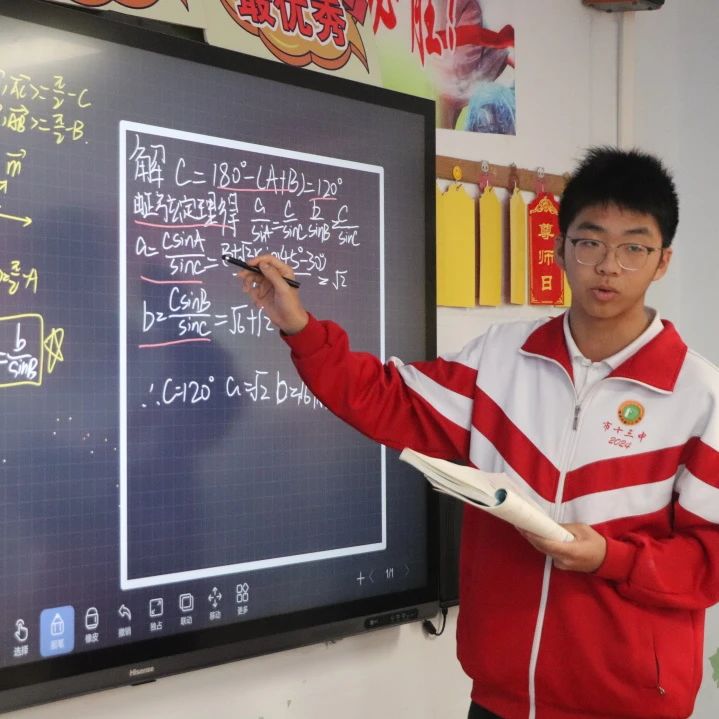 最优秀
必胜!!
〉=π/2-C
〉=π/2-B
m
π/2-A
=b/sinB
解 C=180°-(A+B)=120°
由正弦定理得 a/sinA=c/sinC b/sinB=c/sinC
a=csinA/sinC=
45°-30°
=√2
b=CsinB/sinC=√6+√2
∴C=120° a=√2 b=
尊师日
市十三中
2024
1/1
选择
画笔
板皮
撤销
独占
联动
移动
更多
Hisense